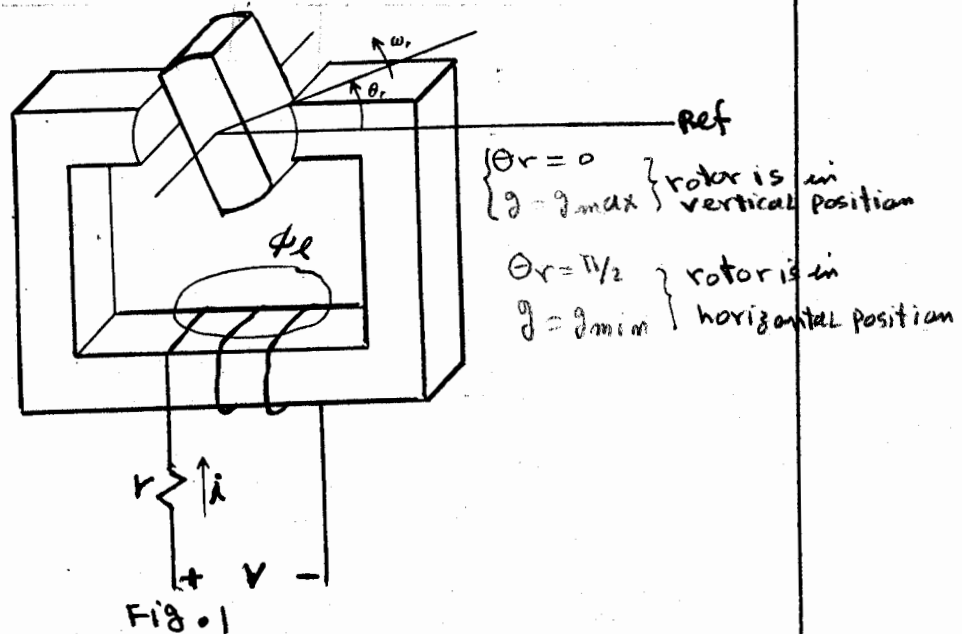 ωr
θr
Ref
{θr = 0
{g = gmax } rotor is in vertical position
θr = π/2
g = gmin } rotor is in horizontal position
ϕℓ
r
i
+ V -
Fig. 1